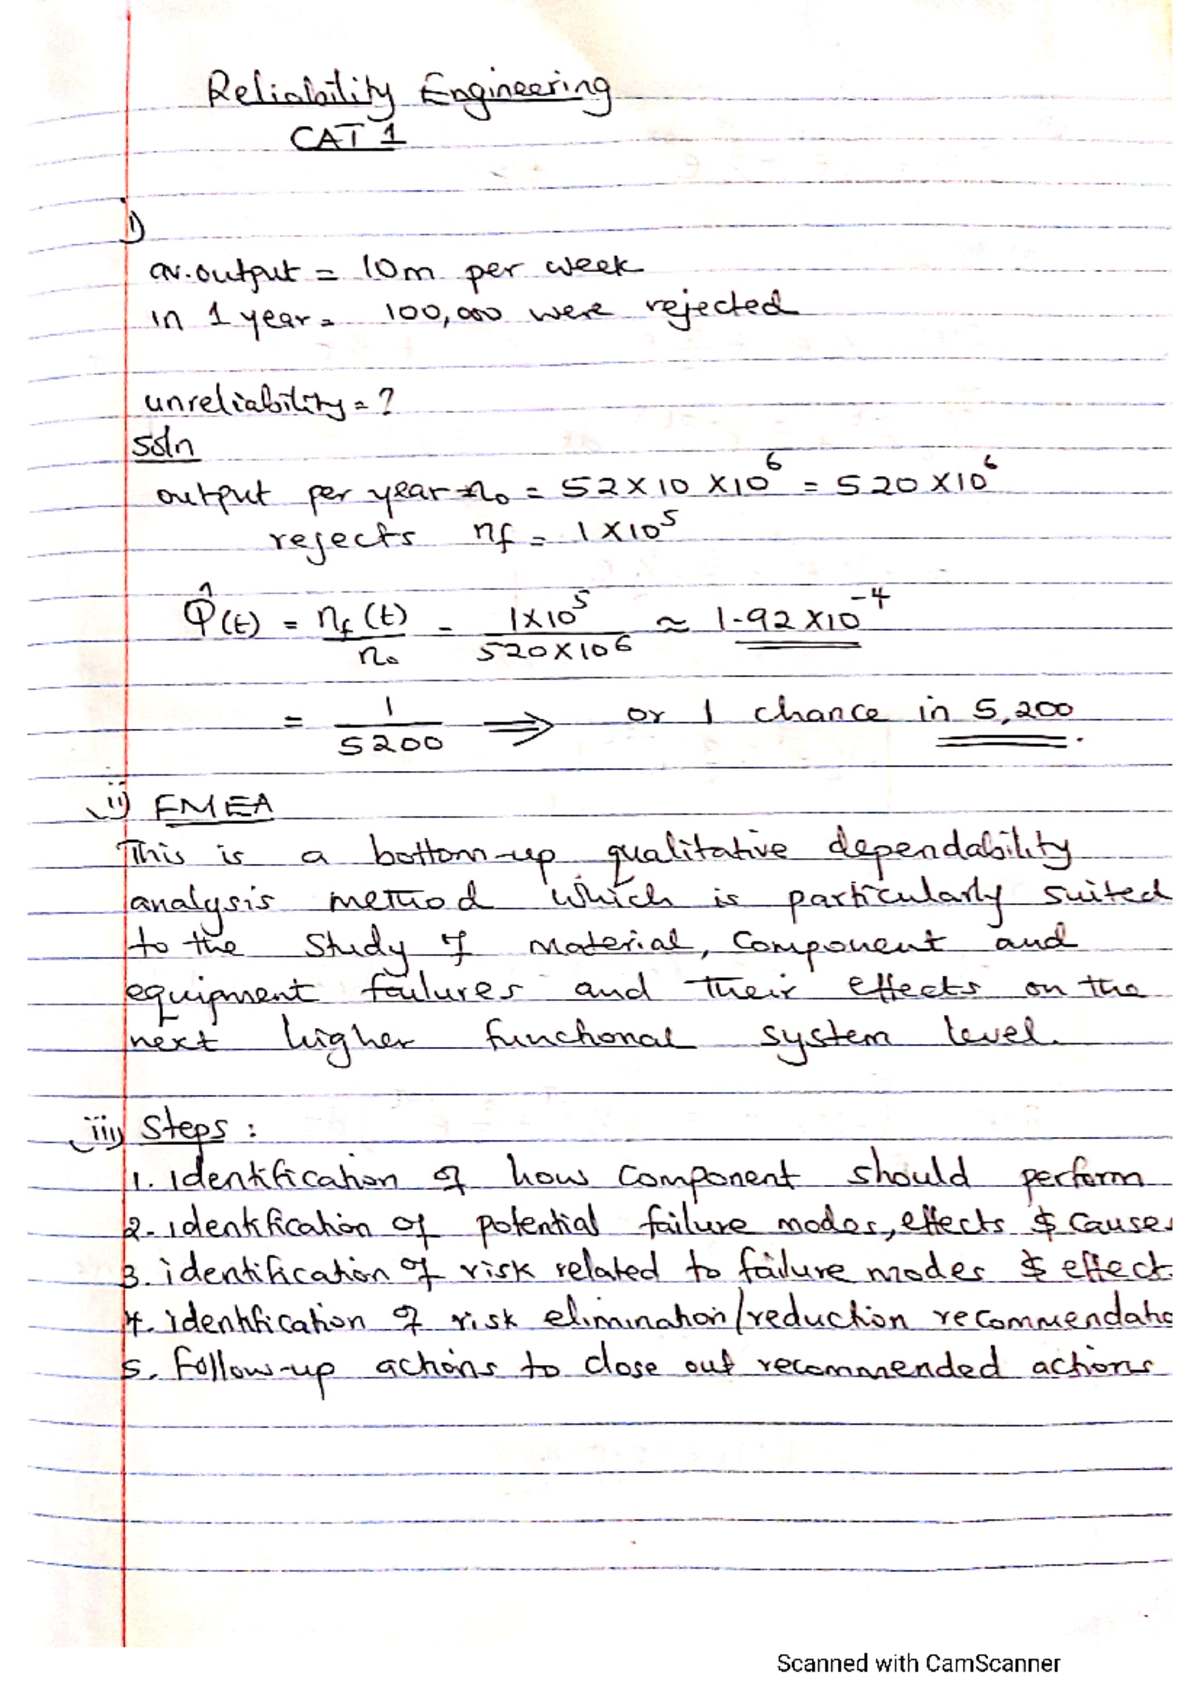 Reliability Engineering
CAT 1
i)
av. output = 10m per week
in 1 year = 100,000 were rejected
unreliability = ?
soln
output per year n₀ = 52 × 10 × 10⁶ = 520 × 10⁶
rejects nf = 1 × 10⁵
Q̂(t) = nf(t)/n₀ = 1×10⁵/520×10⁶ ≈ 1.92 × 10⁻⁴
= 1/5200 ⟹ or 1 chance in 5,200.
ii) FMEA
This is a bottom-up qualitative dependability
analysis method which is particularly suited
to the study of material, component and
equipment failures and their effects on the
next higher functional system level.
iii) Steps :
1. Identification of how component should perform
2. identification of potential failure modes, effects & causes
3. identification of risk related to failure modes & effect
4. identification of risk elimination/reduction recommendatio
5. Follow-up actions to close out recommended actions
Scanned with CamScanner